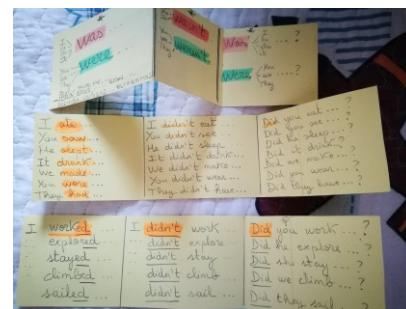 I
was
You
were
They
wasn't
weren't
Was
I
... ?
Were
You
we
They
... ?
I ate...
You saw...
He slept...
It drank...
We made...
You wore...
They had...
I didn't eat...
You didn't see...
He didn't sleep
It didn't drink...
We didn't make...
You didn't wear...
They didn't have...
Did you eat... ?
Did you see... ?
Did he sleep... ?
Did it drink... ?
Did we make... ?
Did you wear... ?
Did they have... ?
I worked ...
explored ...
stayed ...
climbed ...
sailed ...
I didn't work ...
didn't explore ...
didn't stay ...
didn't climb ...
didn't sail ...
Did you work ... ?
Did he explore ... ?
Did she stay ... ?
Did we climb ... ?
Did they sail